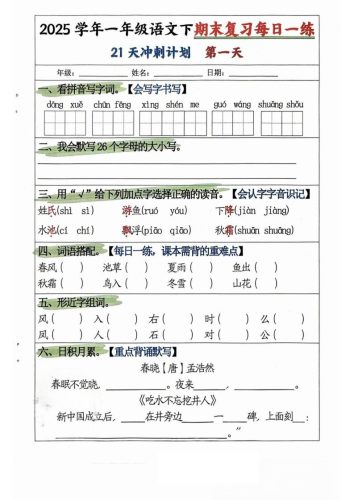 2025 学年一年级语文下期末复习每日一练
21 天冲刺计划 第一天
年级：________ 姓名：________ 日期：________
一、看拼音写字词。【会写字书写】
dōng xuě chūn fēng xìng shén me guó wáng shuāng shǒu
二、我会默写 26 个字母的大小写。
三、用“√”给下列加点字选择正确的读音。【会认字字音识记】
姓氏(shì sì) 游鱼(ruó yóu) 下降(jiàn jiàng)
水池(cí chí) 飘浮(piāo qiāo) 秋霜(shuān shuāng)
四、词语搭配。【每日一练，课本需背的重难点】
春风( ) 池草( ) 夏雨( ) 鱼出( )
秋霜( ) 鸟入( ) 冬雪( ) 山花( )
五、形近字组词。
风( ) 入( ) 右( ) 时( ) 么( )
凤( ) 人( ) 石( ) 对( ) 公( )
六、日积月累。【重点背诵默写】
春晓【唐】孟浩然
春眠不觉晓，________。夜来________，________。
《吃水不忘挖井人》
新中国成立后，________在井旁边________一________碑，上面刻________：
________。”